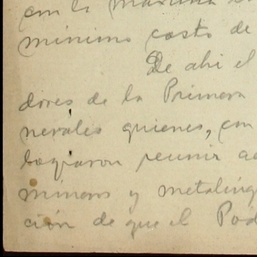 con la máxima
mínimo costo de
De ahí el
dores de la Primera
nerales quienes, con
lograron reunir
mineros y metalúrg
ción de que el Pod